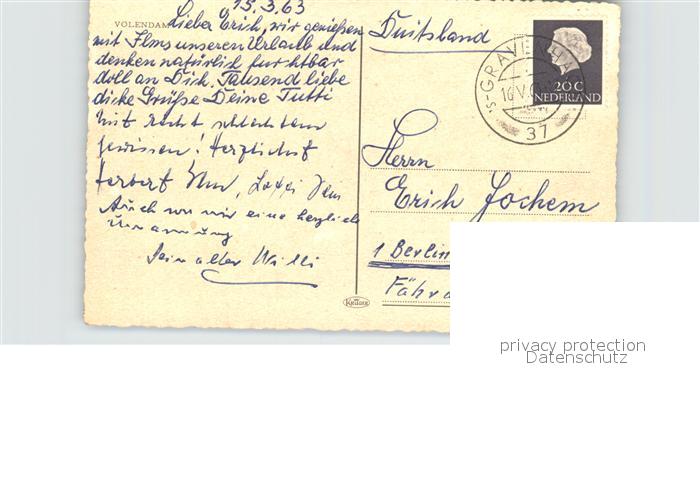 VOLENDAM
15.3.63
Lieber Erich, wir genießen
mit Elms unseren Urlaub und
denken natürlich furchtbar
doll an Dich. Tausend liebe
dicke Grüße Deine Tutti
Mit recht schlechtem
Gewissen! Herzlichst
Herbert
Auch von mir eine herzliche
Umarmung
Dein alter Willi
Duitsland
'S-GRAVENHA
37
20 C
NEDERLAND
Herrn
Erich Jochem
1 Berlin
Fähr
Krüger
privacy protection
Datenschutz